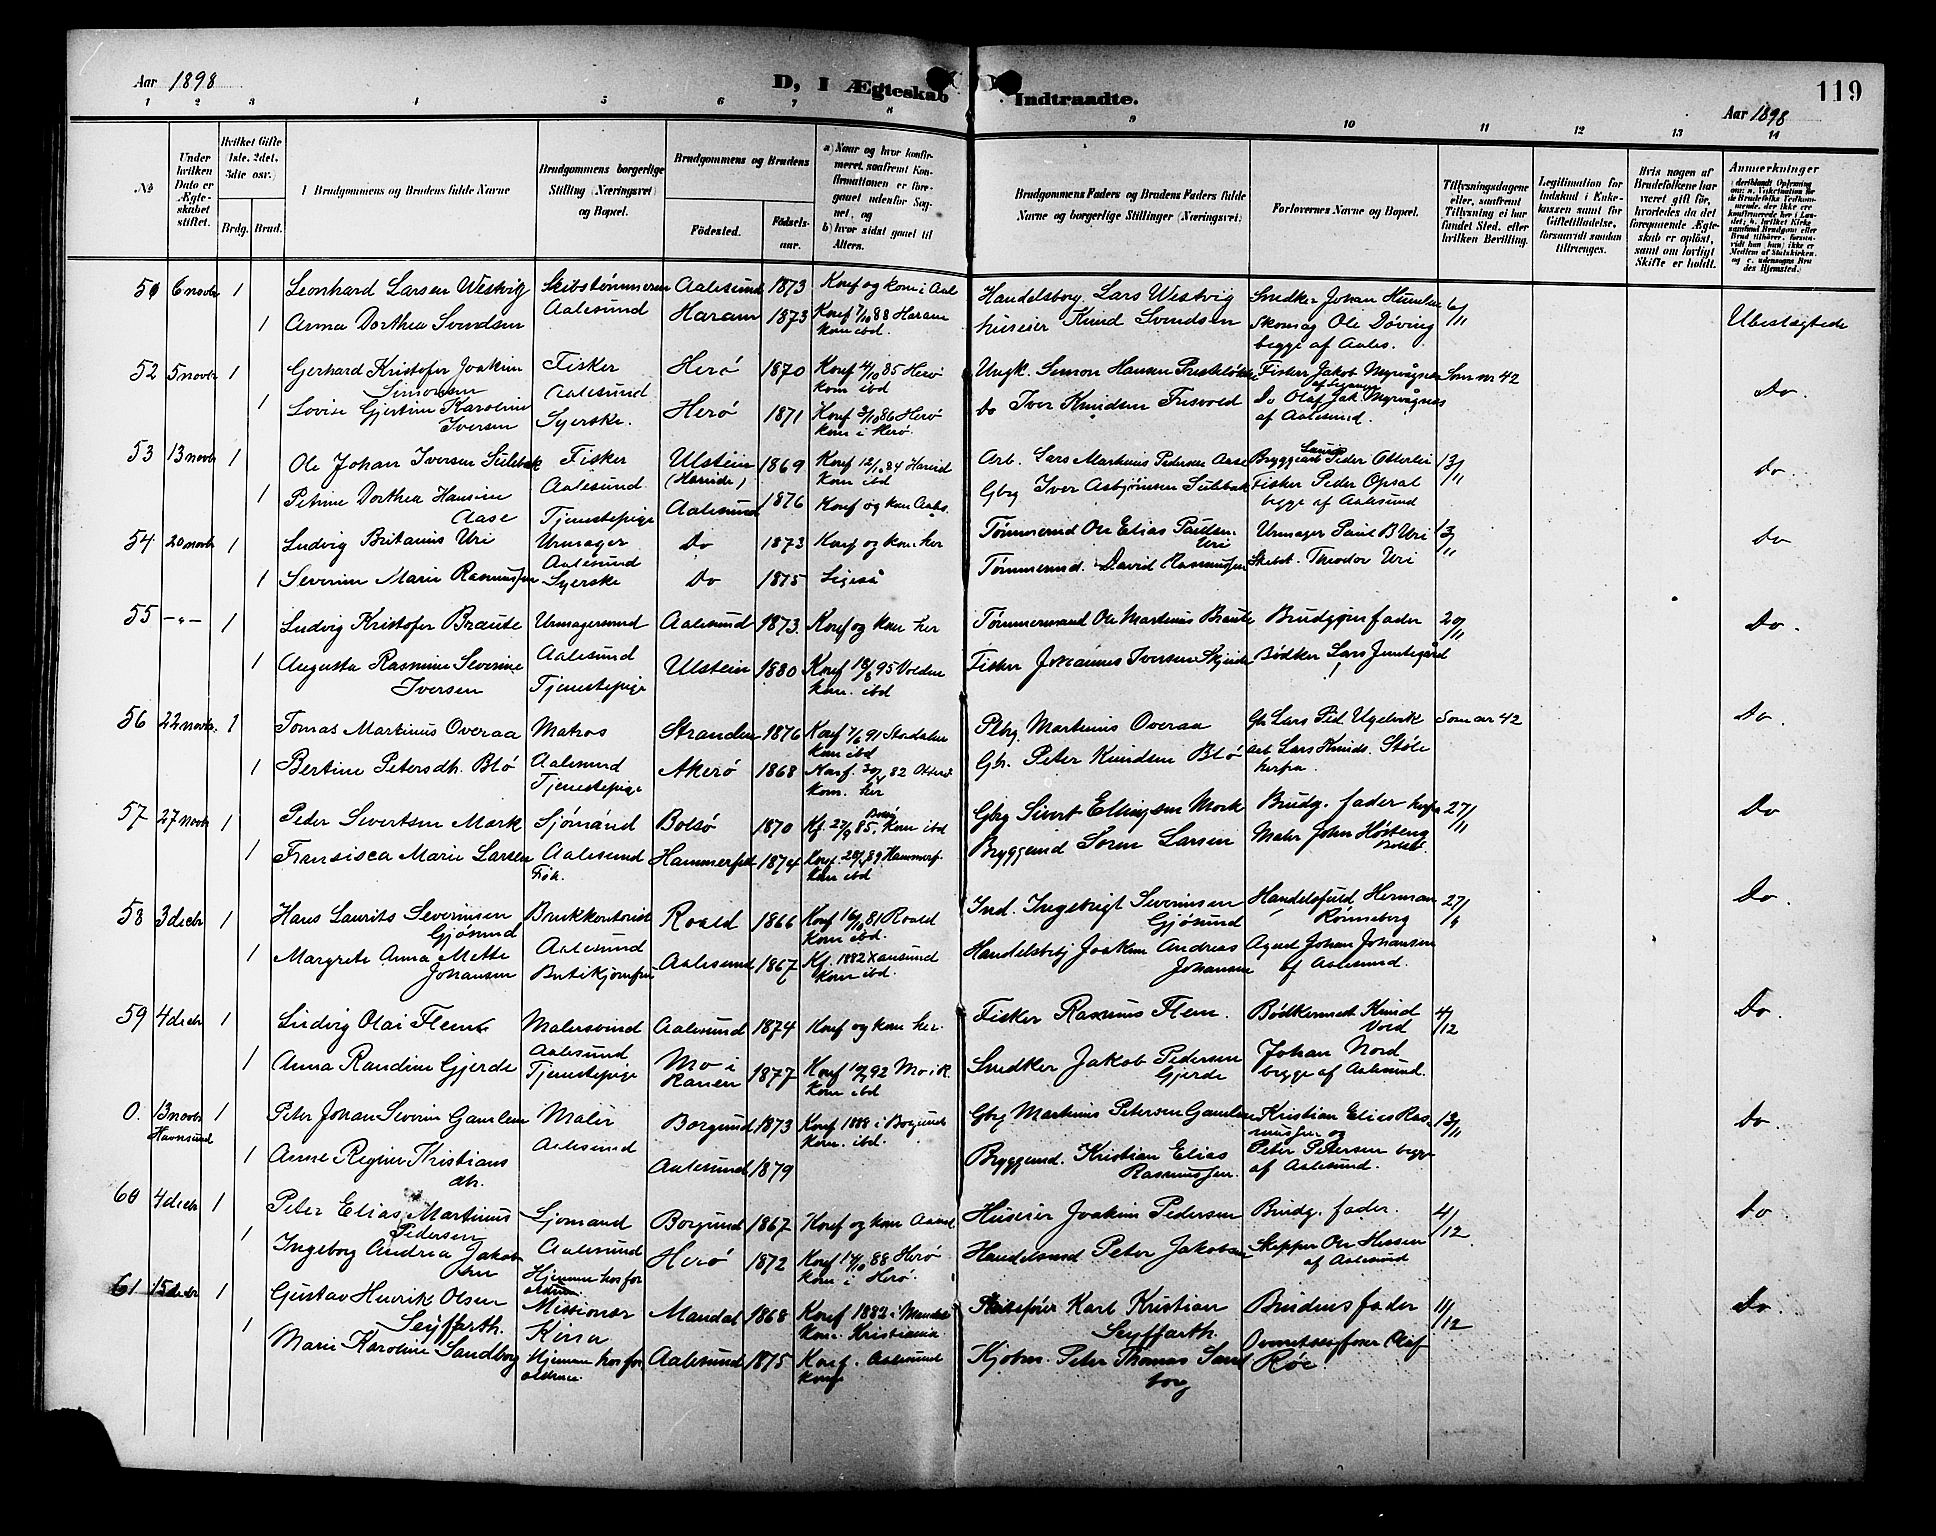 Aar 1898
D, I Ægteskab Indtraadte.
119
Aar 1898
1 2 3 4 5 6 7 8 9 10 11 12 13 14
No
Under hvilken Dato er Ægteskabet stiftet.
Hvilket Gifte 1ste. 2det. 3die osv.)
Brdg. Brud.
Brudgommens og Brudens fulde Navne
Brudgommens borgerlige Stilling (Næringsvei) og Bopæl.
Brudgommens og Brudens
Fødested.
Fødselsaar.
a) Naar og hvor konfirmeret, saafremt Konfirmationen er foregaaet udenfor Sognet, og
b) hvor sidst gaaet til Alters.
Brudgommens Faders og Brudens Faders fulde Navne og borgerlige Stillinger (Næringsvei)
Forlovernes Navne og Bopæl.
Tillysningsdagene eller, saafremt Tillysning ei har fundet Sted, efter hvilken Bevilling.
Legitimation for Indskud i Enkekassen samt for Giftetilladelse, forsaavidt saadan tiltrænges.
Hvis nogen af Brudefolkene har været gift før, hvorledes da det foregaaende Ægteskab er opløst, samt om lovligt Skifte er holdt.
Anmærkninger
6 novbr 1 Leonhard Larsen Westvig Skibstømmerm Aalesund 1873 Konf og kom i Aal Handelsborg. Lars Westvig Snedker Johan Humlen 6/11 Ubeslægtede
1 Anna Dorthea Svendsen Aalesund Haram 1873 Konf 7/10 88 Haram kom ibd Huseier Knud Svendsen Skomag Ole Døving begge af Aales.
52 5 novbr 1 Gerhard Kristofer Joakim Simonsen Fisker Herø 1870 Konf 4/10 85 Herø kom ibd Ungk. Simon Hansen Fisker Jakob Myrvågnes Som nr 42 Do.
1 Lovise Gjertine Karoline Iversen Aalesund Syerske. Herø 1871 Konf 3/10 86 Herø kom i Herø. Do Iver Knudsen Frisvold Do Olaf Jak. Myrvågnes af Aalesund.
53 13 novbr 1 Ole Johan Iversen Sulebak Fisker Ulstein (Hareide) 1869 Konf 12/10 84 Hareid kom ibd Arb. Lars Martinus Pedersen Aase Peder Otterlei 13/11 Do.
1 Petrine Dorthea Hansine Aase Aalesund. Tjenestepige Aalesund 1876 Konf og kom Aales. Gbrg Iver Asbjørnsen Sulebak Fisker Peder Opsal begge af Aalesund
54 20 novbr 1 Ludvig Britanus Uri Urmager Do 1873 Konf og kom her Tømmermd Ole Elias Paulsen Uri Urmager Paul B Uri 13/11 Do
1 Severine Marie Rasmussen Aalesund Syerske Do 1875 Ligeså Tømmermd. David Rasmussen Theodor Uri
55 -"- 1 Ludvig Kristofer Braute Urmagersvend Aalesund 1873. Konf og kom her Tømmermand Ole Martinus Braute Brudgoms fader 20/11 Do.
1 Augusta Rasmine Severine Iversen Aalesund Tjenestepige Ulstein 1880 Konf 18/8 95 Volden kom. ibd Fisker Johannes Iversen Bødker Lars
56 22 novbr. 1 Tomas Martinus Overaa Matros Stranden 1876 Konf 7/6 91 Stordalen kom ibd Martinus Overaa Lars Ped Ugelvik Som nr 42 Do.
1 Bertine Petersdh. Blø Aalesund Tjenestepige Akerø 1868 82 kom. her Gbr. Peter Knudsen Blø arb Lars Knuds. Støle herfra
57 27 novbr 1 Peder Sivertsen Mork Sjømand Bolsø 1870 Kf. 27/9 85. kom ibd Gbrg Sivert Ellingsen Mork Brudg. fader herfra 27/11 Do
1 Fransisca Marie Larsen Aalesund Hammerfest 1874 Hammerf. kom ibd Bryggemd Søren Larsen Maler John
58 3 decbr 1 Hans Laurits Severinsen Gjøsund Roald 1866 Konf 16/10 81 Roald kom ibd. Ind. Ingebrigt Severinsen Gjøsund Herman Rønneberg 27/ Do.
1 Margrete Anna Mette Johansen Aalesund Aalesund 1867 Kf. 1882 kom ibd. Joakim Andreas Johansen Agent Johan Johansen af Aalesund.
59 4 decbr 1 Ludvig Olai Flem Malersvend Aalesund 1874 Konf og kom her. Fisker Rasmus Flem. Knud Vold 4/12 Do.
1 Anna Randine Gjerde Aalesund Tjenestepige Mo i Ranen 1877 92 Mo i R. kom ibd Snedker Jakob Pedersen Gjerde Johan Nord begge af Aalesund.
0. 13 novbr Havnsund 1 Peter Johan Severin Gamlem Maler Borgund 1873 Konf 1888 i Borgund kom. ibd. Gbrg Martinus Petersen Gamlem Kristian Elias Rasmussen og 13/11 Do.
1 Anne Regine Kristians dh. Aalesund Aalesund 1879 Bryggemd. Kristian Elias Rasmussen. Peter Petersen begge af Aalesund.
60 4 decbr 1 Peter Elias Martinus Pedersen Sjømand Borgund 1867 Konf og kom Aalesd Huseier Joakim Pedersen Brudg. fader. 4/12 Do
1 Ingeborg Andrea Jakobsen Aalesund Hjemme hos forældrene Herø 1872 88 Herø kom i Herø. Handelsmd Peter Jakobsen Skipper Ole Hessen af Aalesund
61 15 decbr 1 Gustav Henrik Olsen Seyffarth. Missionær Kina Mandal 1868 Konf 1882 i Mandal kom. Kristiania Karl Kristian Seyffarth. Brudens fader 11/12 Do.
1 Marie Karoline Sandborg Hjemme hos forældrene. Aalesund 1875 Konf. Aalesund Kjøbm. Peter Thomas Sandborg Olaf Røe.